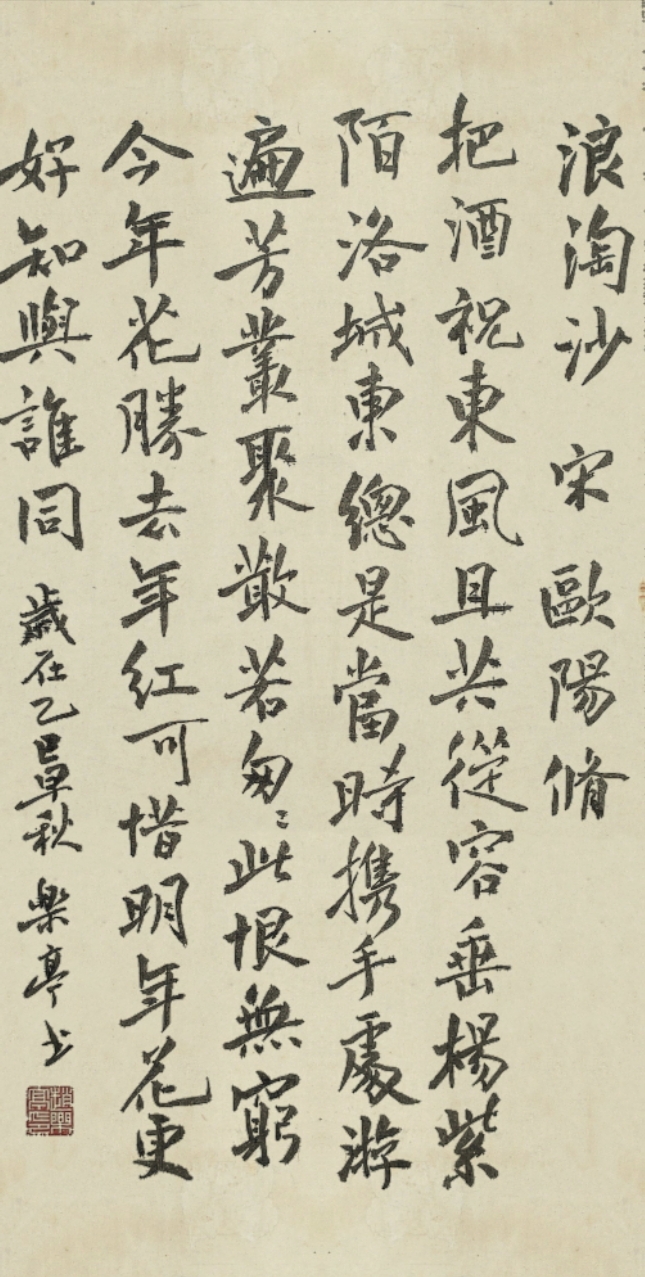 浪淘沙 宋 歐陽脩
把酒祝東風且共從容垂楊紫
陌洛城東總是當時携手處游
遍芳叢聚散若匆〻此恨無窮
今年花勝去年紅可惜明年花更
好知與誰同 歲在乙巳秋 樂亭书